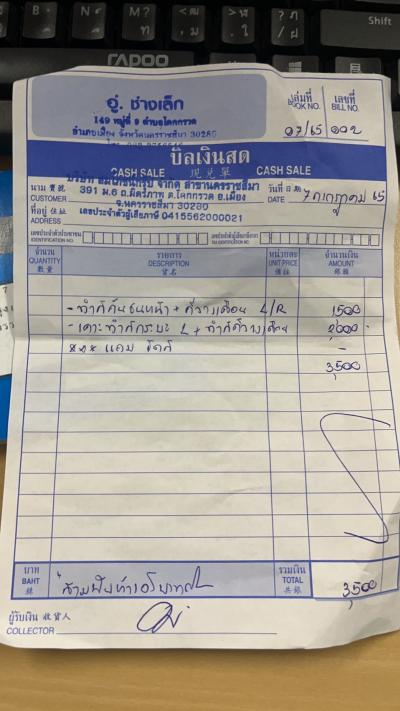 N M ? B
RAPOO
Shift
อู่. ช่างเล็ก
149 หมู่ที่ 9 ตำบลโคกกรวด
อำเภอเมือง จังหวัดนครราชสีมา 30280
เล่มที่ เลขที่
BOOK NO. BILL NO.
07/65 002
บิลเงินสด
CASH SALE 現兑單 CASH SALE
สาขานครราชสีมา
นาม 寶號
CUSTOMER 391 ม.6 ถ.มิตรภาพ ต.โคกกรวด อ.เมือง
จ.นครราชสีมา 30280
วันที่ 日期
DATE 7 กรกฎาคม 65
ที่อยู่ 住址 เลขประจำตัวผู้เสียภาษี 0415562000021
ADDRESS
เลขประจำตัวประชาชน
IDENTIFICATION NO.
เลขประจำตัวผู้เสียภาษี
TAX IDENTIFICATION NO.
จำนวน รายการ หน่วยละ จำนวนเงิน
QUANTITY DESCRIPTION UNIT PRICE AMOUNT
數量 貨名 價錢 銀額
- ทำสีกันชนหน้า + คิ้วางเลื่อน L/R 1500
- เคาะทำสีกระบะ L + ทำสี 2,000 -
แถม -
3,500
บาท รวมเงิน
BAHT สามพันห้าร้อยบาท TOTAL 3,500
銖 共銀
ผู้รับเงิน 收貨人
COLLECTOR